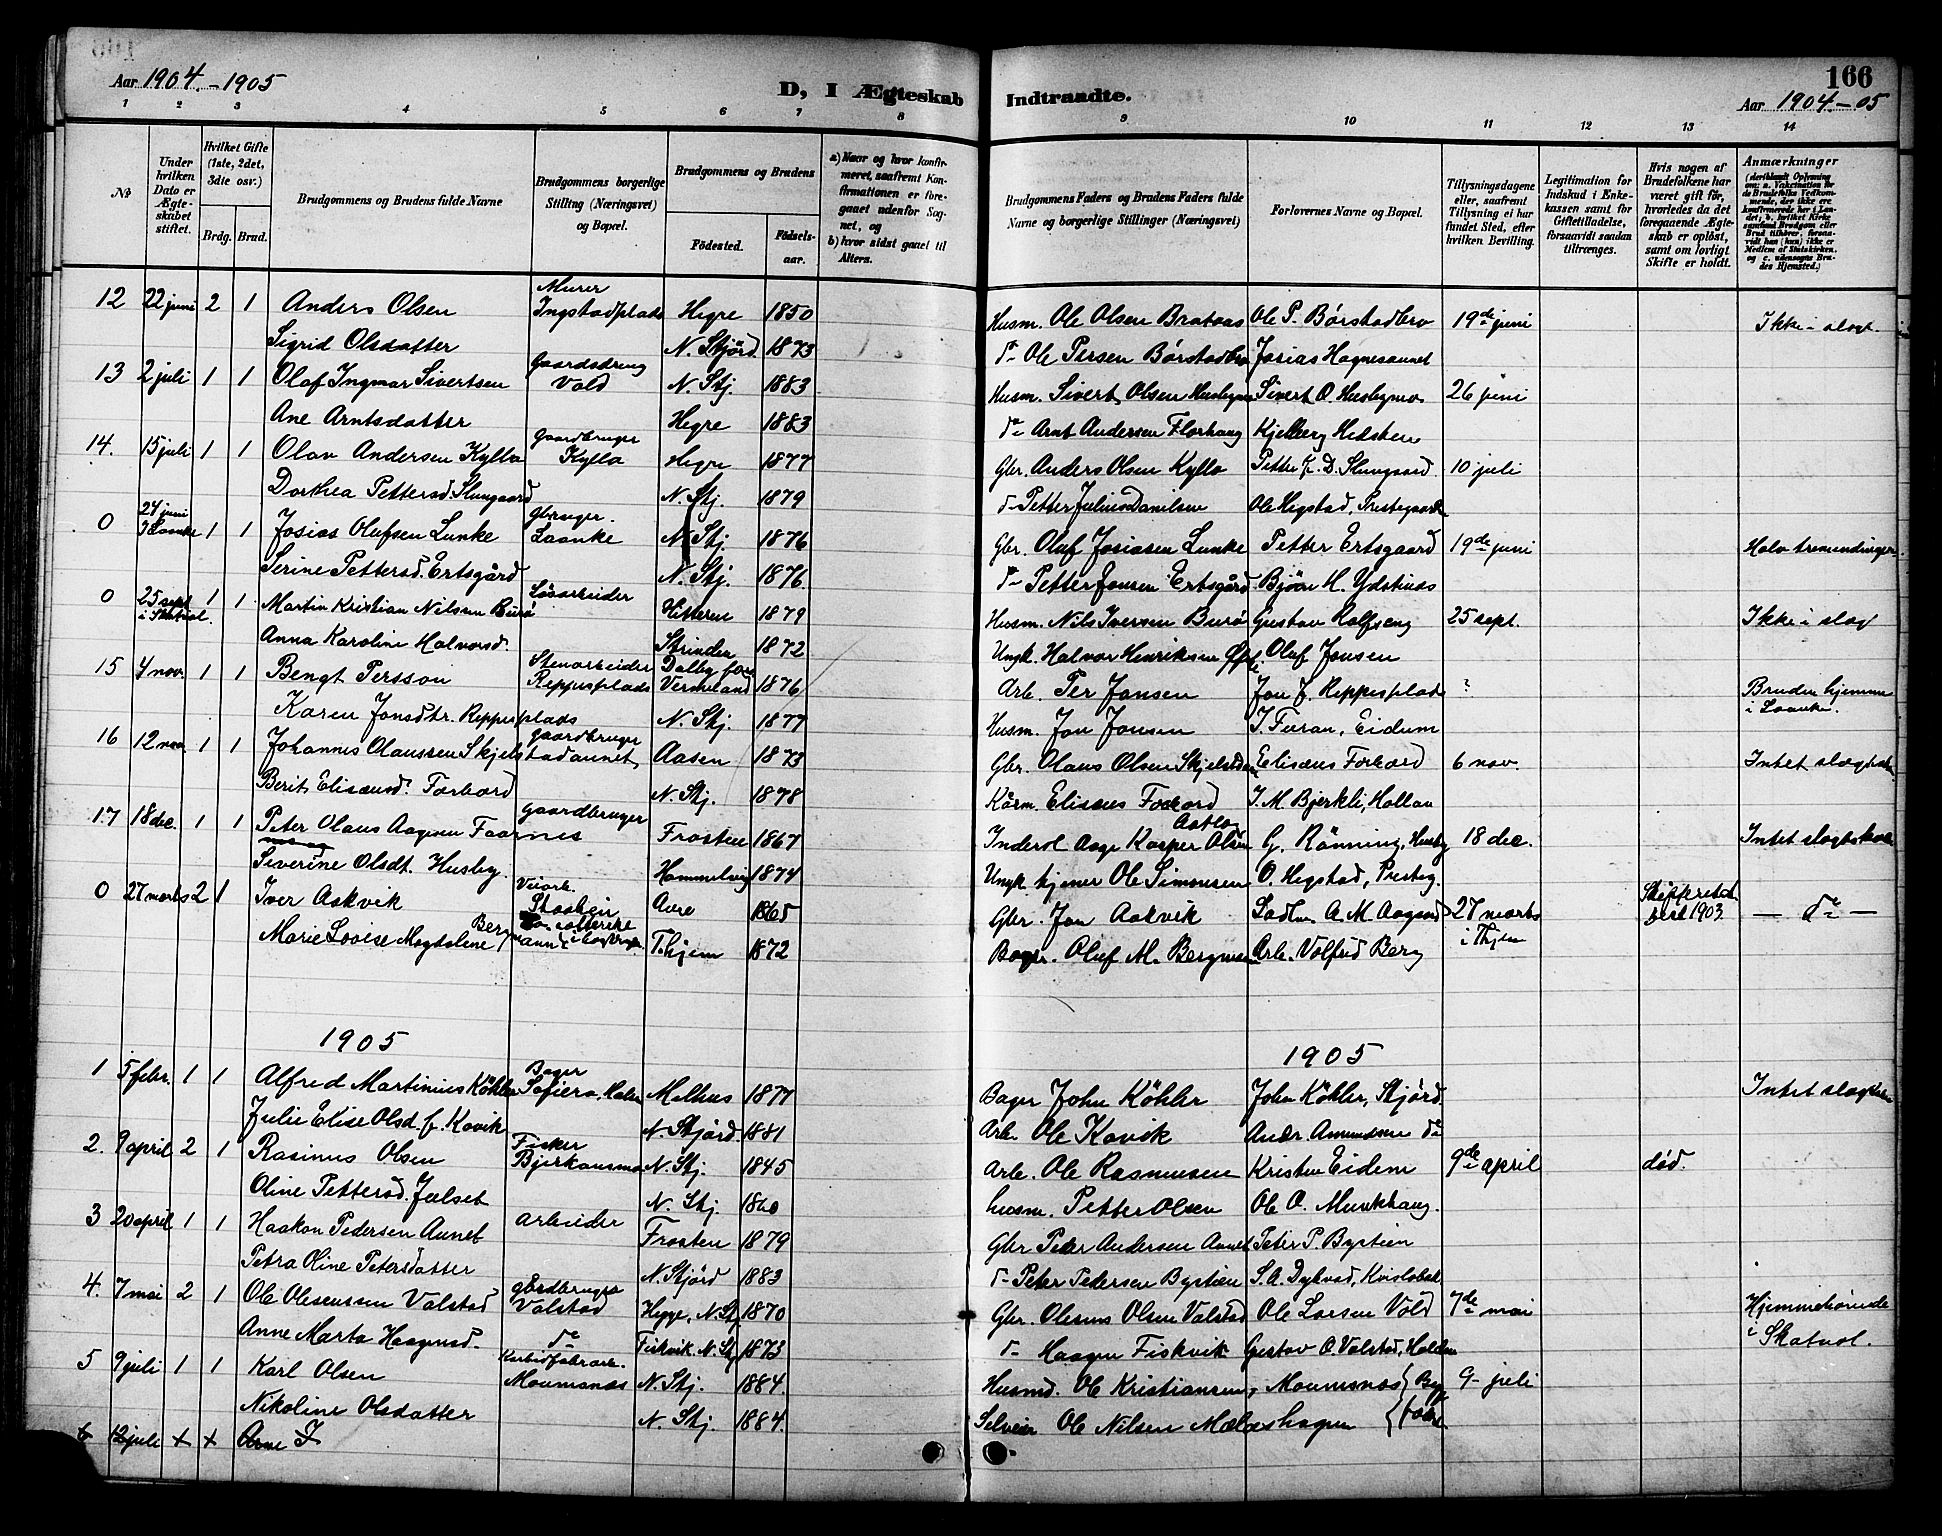 Aar 1904.-1905
D, I Ægteskab Indtraadte.
166
Aar 1904.-05
1 2 3 4 5 6 7 8 9 10 11 12 13 14
№
Under hvilken Dato er Ægteskabet stiftet.
Hvilket Gifte (1ste, 2det, 3die osv.)
Brdg. Brud.
Brudgommens og Brudens fulde Navne
Brudgommens borgerlige Stilling (Næringsvei) og Bopæl.
Brudgommens og Brudens
Fødested. Fødselsaar.
a) Naar og hvor konfirmeret, saafremt Konfirmationen er foregaaet udenfor Sognet, og
b) hvor sidst gaaet til Alters.
Brudgommens Faders og Brudens Faders fulde Navne og borgerlige Stillinger (Næringsvei)
Forlovernes Navne og Bopæl.
Tillysningsdagene eller, saafremt Tillysning ei har fundet Sted, efter hvilken Bevilling.
Legitimation for Indskud i Enkekassen samt for Giftetilladelse, forsaavidt saadan tiltrænges.
Hvis nogen af Brudefolkene har været gift før, hvorledes da det foregaaende Ægteskab er opløst, samt om lovligt Skifte er holdt.
Anmærkninger (deriblandt Oplysning om: a. Vaccination for de Brudefolks Vedkommende, der ikke ere konfirmerede her i Landet; b. hvilket Kirkesamfund Brudgom eller Brud tilhører, forsaavidt han (hun) ikke er Medlem af Statskirken, og c. udensogns Brudes Hjemsted.)
12 22 juni 2 1 Anders Olsen Murer Ingstadplads Hegre 1850 Husm. Ole Olsen Brataas Ole P. Børstadbro 19de juni Ikke i slægt.
Sigrid Olsdatter N. Stjørd 1873 do Ole Persen Børstadbro Josias Hognesaunet
13 2 juli 1 1 Olaf Ingmar Sivertsen Gaardsdreng Vold N. Stj. 1883 Husm. Sivert Olsen Husbymo Sivert O. Husbymo 26 juni
Ane Arntsdatter Hegre 1883 do Arnt Andersen Florhaug Kjelberg Hedsken
14. 15 juli 1 1 Olav Andersen Kyllo Gaardbruger Kyllo Hegre 1877 Gbr. Anders Olsen Kyllo Petter J. D. Slungaard 10 juli
Dorthea Pettersd. Slungaard N. Stj. 1879 do Petter Julius Danilsen Ole Hegstad, Prestegaarden
0 24 juni i Laanke 1 1 Josias Olufsen Lunke Gbruger. Laanke N. Stj. 1876 Gbr. Oluf Josiasen Lunke Petter Ertsgaard 19de juni Halvtremendinger
Serine Pettersd. Ertsgård N. Stj. 1876 do Petter Jonsen Ertsgård Bjørn H. Ydstinæs
0 25 sept i Skatval. 1 1 Martin Kristian Nilsen Burø Løsarbeider Hitteren 1879 Husm. Nils Iversen Burø Gustav Halfseng 25 sept. Ikke i slægt
Anna Karoline Halvorsd. Strinden 1872 Ungk. Halvor Henriksen Oluf Jonsen
15 4 nov. 1 1 Bengt Persson Stenarbeider Reppesplads Dalby fors. Vermeland 1876 Arb. Per Jonsen Jon J. Reppesplads ? Bruden hjemme i Laanke.
Karen Jonsdtr. Reppesplads N. Stj. 1877 Husm. Jon Jonsen I. Furan, Eidum
16 12 nov 1 1 Johannes Olaussen Skjelstadaunet gaardbruger Aasen 1873 Gbr. Olaus Olsen Elisæus Forbord 6 nov. Intet slægtsk
Berit Elisæusd. Forbord N. Stj. 1878 Kårm. Elisæus Forbord I. M. Bjerkli, Hollan
17 18 dec. 1 1 Peter Olaus Aagesen Faarnes gaardbruger Frosten 1867 Inderst Aage Kasper Olsen G. Rønning, Husby 18 dec. Intet slægtskab
Severine Olsdt. Husby Hommelvig 1874 Ungk. tjener Ole Simonsen O. Hegstad, Presteg.
0 27 marts 2 1 Iver Aakvik Veiarb. Aure 1865 Gbr. Jon Aakvik Sadlm. A. M. Aagaard 27 marts i Thjem 1903. — do —
Marie Lovise Magdalene Bergmann T.hjem 1872 Bager. Oluf M. Bergmann Arb. Volfrid Berg
1905 1905
1 5 febr. 1 1 Alfred Martinius Køhler Bager Melhus 1877 Bager John Køhler John Køhler, Stjørd. Intet slægtsk
Julie Elise Olsd. f. Kovik N. Stjørd. 1881 Arb. Ole Kovik Andr. Amundsen do
2. 9 april 2 1 Rasmus Olsen Fisker Bjerkansmo N. Stj. 1845 Arb. Ole Rasmussen Kristen Eidem 9de april død.
Oline Pettersd. Jælset N. Stj. 1860 husm. Petter Olsen Ole O. Munkhaug.
3 20 april 1 1 Haakon Pedersen Aunet arbeider Frosten 1879 Gbr Peder Andersen Aunet Peter P. Bystien
Petra Oline Petersdatter N. Stjørd 1883 do Peter Pedersen Bystien S. A. Dyhvad, Kvislabak
4. 7 mai 2 1 Ole Olesenssen Valstad gårdbruger Valstad Hegge, N. Stj 1870 Gbr. Olesens Olsen Valstad Ole Larsen Vold 7de mai Hjemmehørende i Skatval.
Anne Marta Haagensd. do Fiskvik N. Stj 1873 do Haagen Fiskvik Gustav O. Valstad, Holden
5 9 juli 1 1 Karl Olsen Karbidfabrarb. Moumsnæs N. Stj. 1884. Husmd. Ole Kristiansen, Moumsnæs 9 juli
Nikoline Olsdatter N. Stj. 1884. Selveier Ole Nilsen Mælashagen
6 12 juli + + Arne J